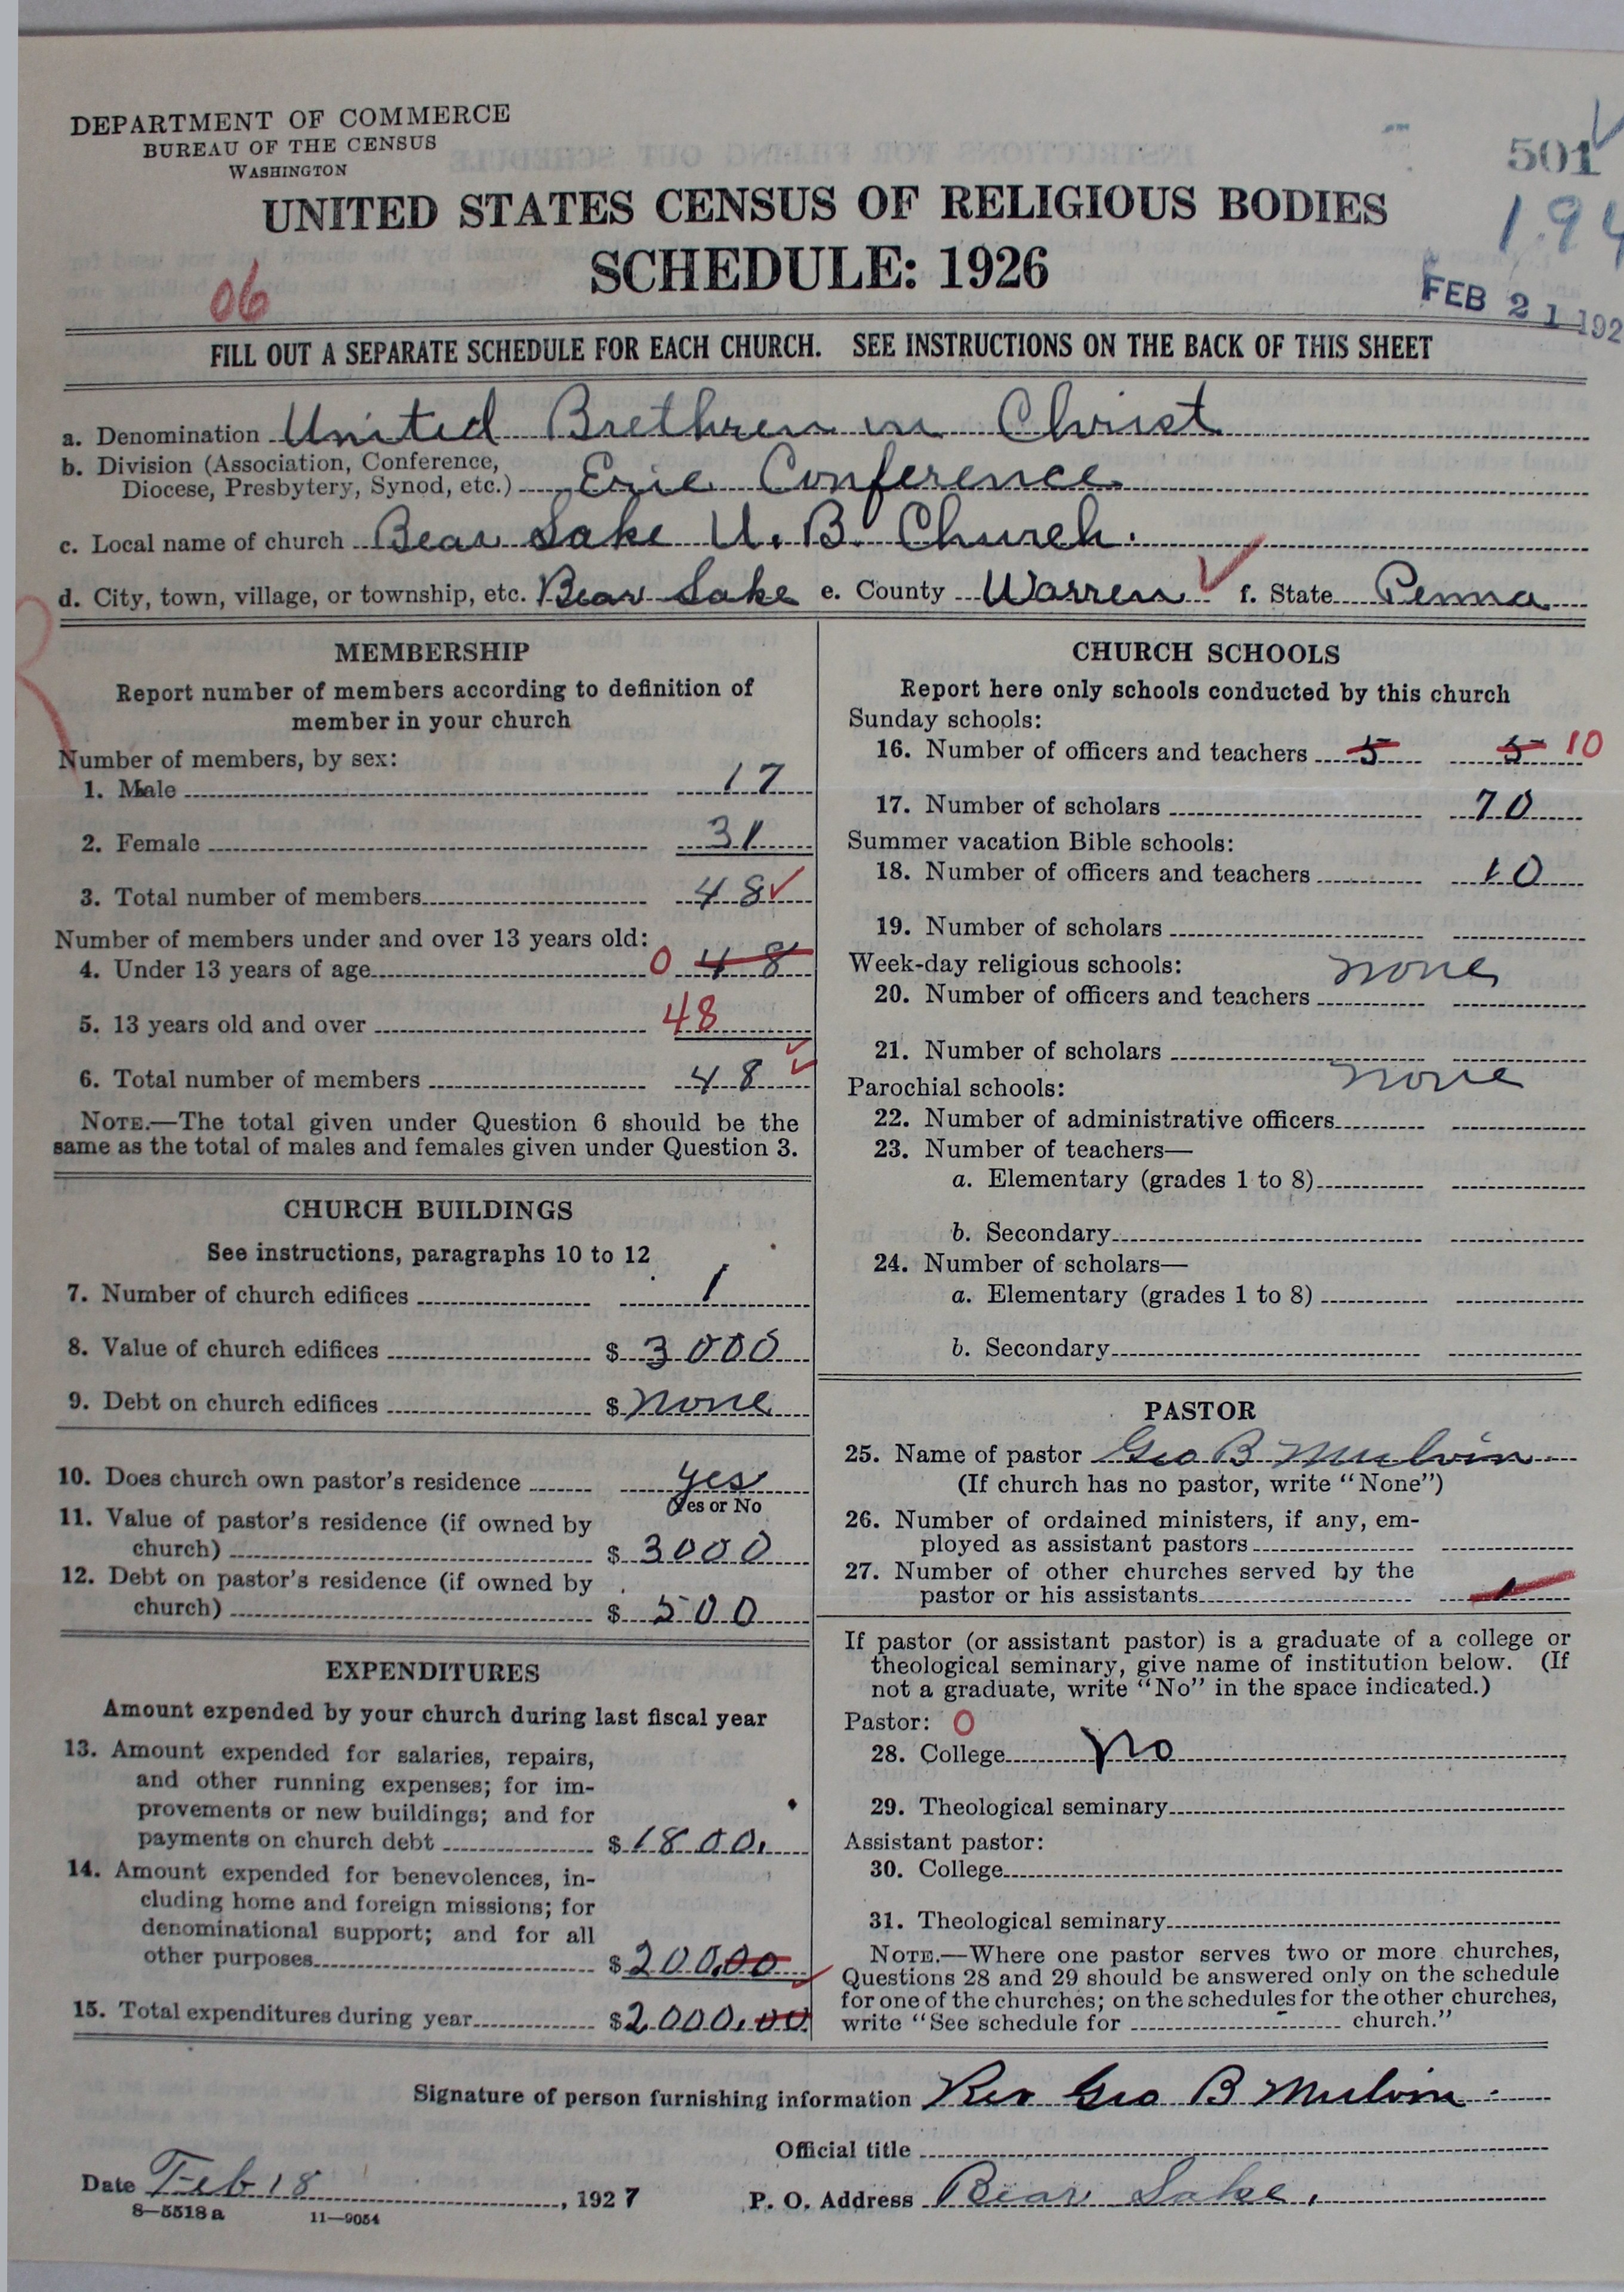 DEPARTMENT OF COMMERCE
BUREAU OF THE CENSUS
WASHINGTON
501
194
UNITED STATES CENSUS OF RELIGIOUS BODIES
SCHEDULE: 1926
06
FEB 21 192
FILL OUT A SEPARATE SCHEDULE FOR EACH CHURCH. SEE INSTRUCTIONS ON THE BACK OF THIS SHEET
a. Denomination United Brethren in Christ
b. Division (Association, Conference,
Diocese, Presbytery, Synod, etc.) Erie Conference
c. Local name of church Bear Lake U. B. Church.
d. City, town, village, or township, etc. Bear Lake e. County Warren f. State Penna
MEMBERSHIP
Report number of members according to definition of
member in your church
Number of members, by sex:
1. Male 17
2. Female 31
3. Total number of members 48
Number of members under and over 13 years old:
4. Under 13 years of age 0 48
5. 13 years old and over 48
6. Total number of members 48
NOTE.—The total given under Question 6 should be the
same as the total of males and females given under Question 3.
CHURCH BUILDINGS
See instructions, paragraphs 10 to 12
7. Number of church edifices 1
8. Value of church edifices $ 3000
9. Debt on church edifices $ none
10. Does church own pastor's residence yes
Yes or No
11. Value of pastor's residence (if owned by
church) $ 3000
12. Debt on pastor's residence (if owned by
church) $ 500
EXPENDITURES
Amount expended by your church during last fiscal year
13. Amount expended for salaries, repairs,
and other running expenses; for im-
provements or new buildings; and for
payments on church debt $ 1800.
14. Amount expended for benevolences, in-
cluding home and foreign missions; for
denominational support; and for all
other purposes $ 200.00
15. Total expenditures during year $ 2000.00
CHURCH SCHOOLS
Report here only schools conducted by this church
Sunday schools:
16. Number of officers and teachers 5 5 10
17. Number of scholars 70
Summer vacation Bible schools:
18. Number of officers and teachers 10
19. Number of scholars
Week-day religious schools: none
20. Number of officers and teachers
21. Number of scholars
Parochial schools: none
22. Number of administrative officers
23. Number of teachers—
a. Elementary (grades 1 to 8)
b. Secondary
24. Number of scholars—
a. Elementary (grades 1 to 8)
b. Secondary
PASTOR
25. Name of pastor Geo B Mulvin
(If church has no pastor, write "None")
26. Number of ordained ministers, if any, em-
ployed as assistant pastors
27. Number of other churches served by the
pastor or his assistants
If pastor (or assistant pastor) is a graduate of a college or
theological seminary, give name of institution below. (If
not a graduate, write "No" in the space indicated.)
Pastor: 0
28. College No
29. Theological seminary
Assistant pastor:
30. College
31. Theological seminary
NOTE.—Where one pastor serves two or more churches,
Questions 28 and 29 should be answered only on the schedule
for one of the churches; on the schedules for the other churches,
write "See schedule for church."
Signature of person furnishing information Rev Geo B Mulvin
Official title
Date Feb 18, 1927
P. O. Address Bear Lake,
8—5518a 11—9054